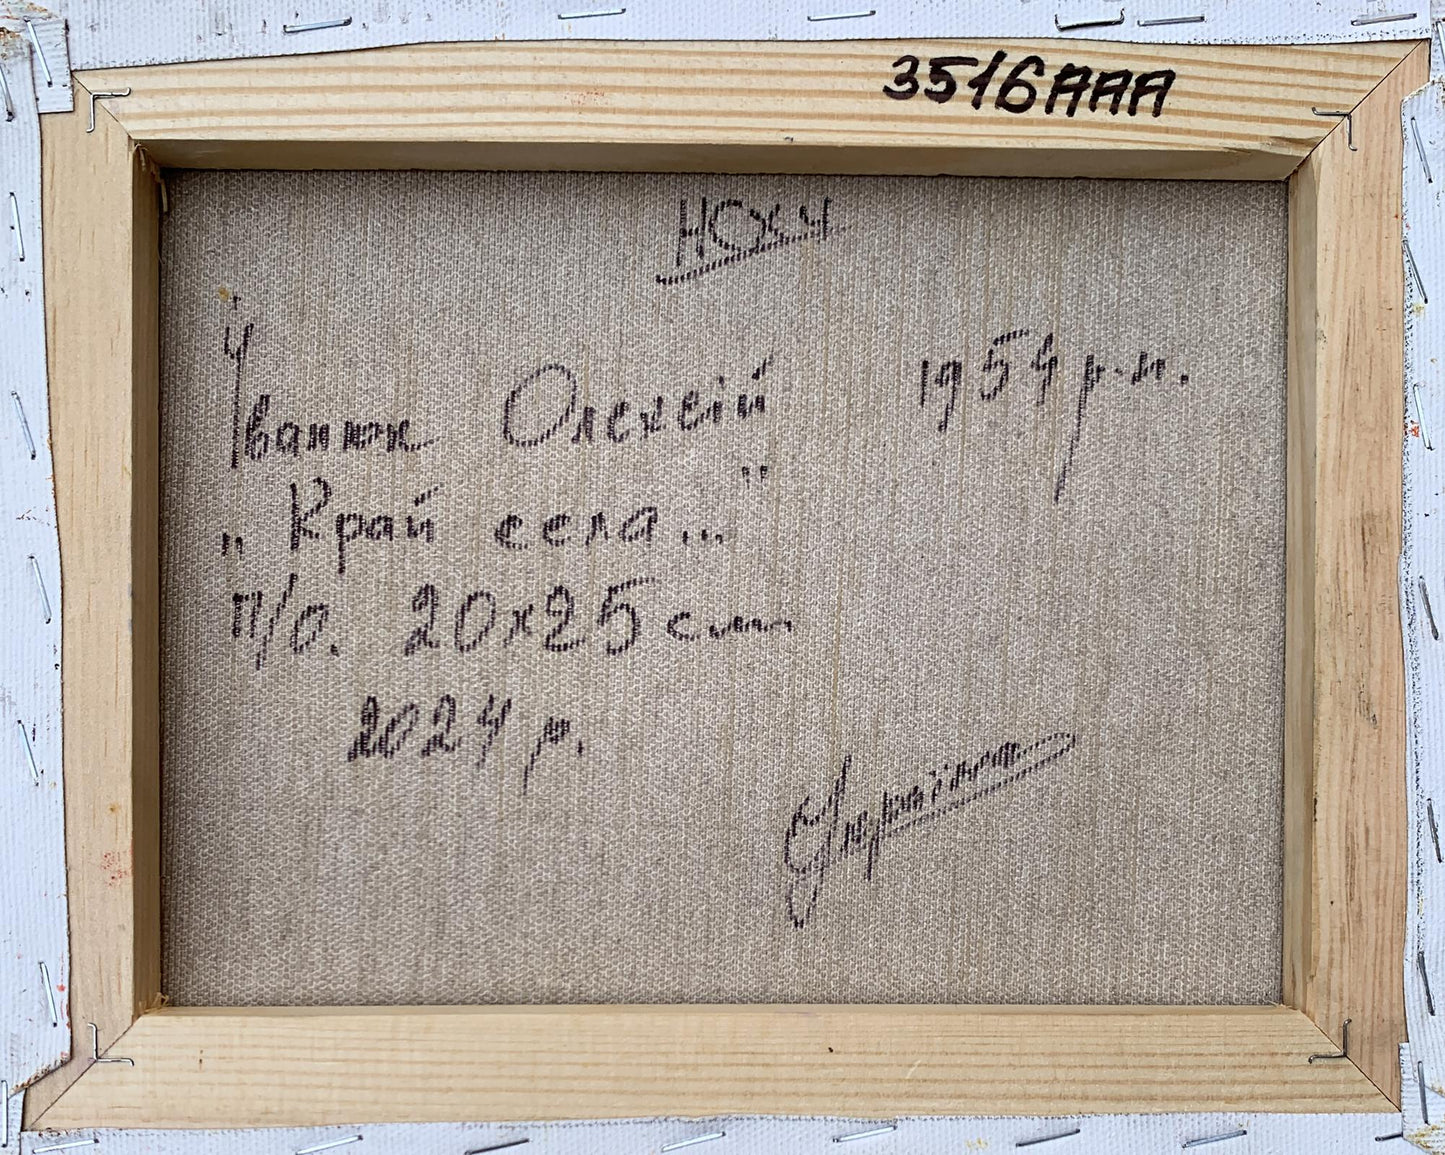 3516AAA
НСХУ
Іванюк Олексій 1954 р.н.
„Край села..."
п/о. 20х25см.
2024 р.